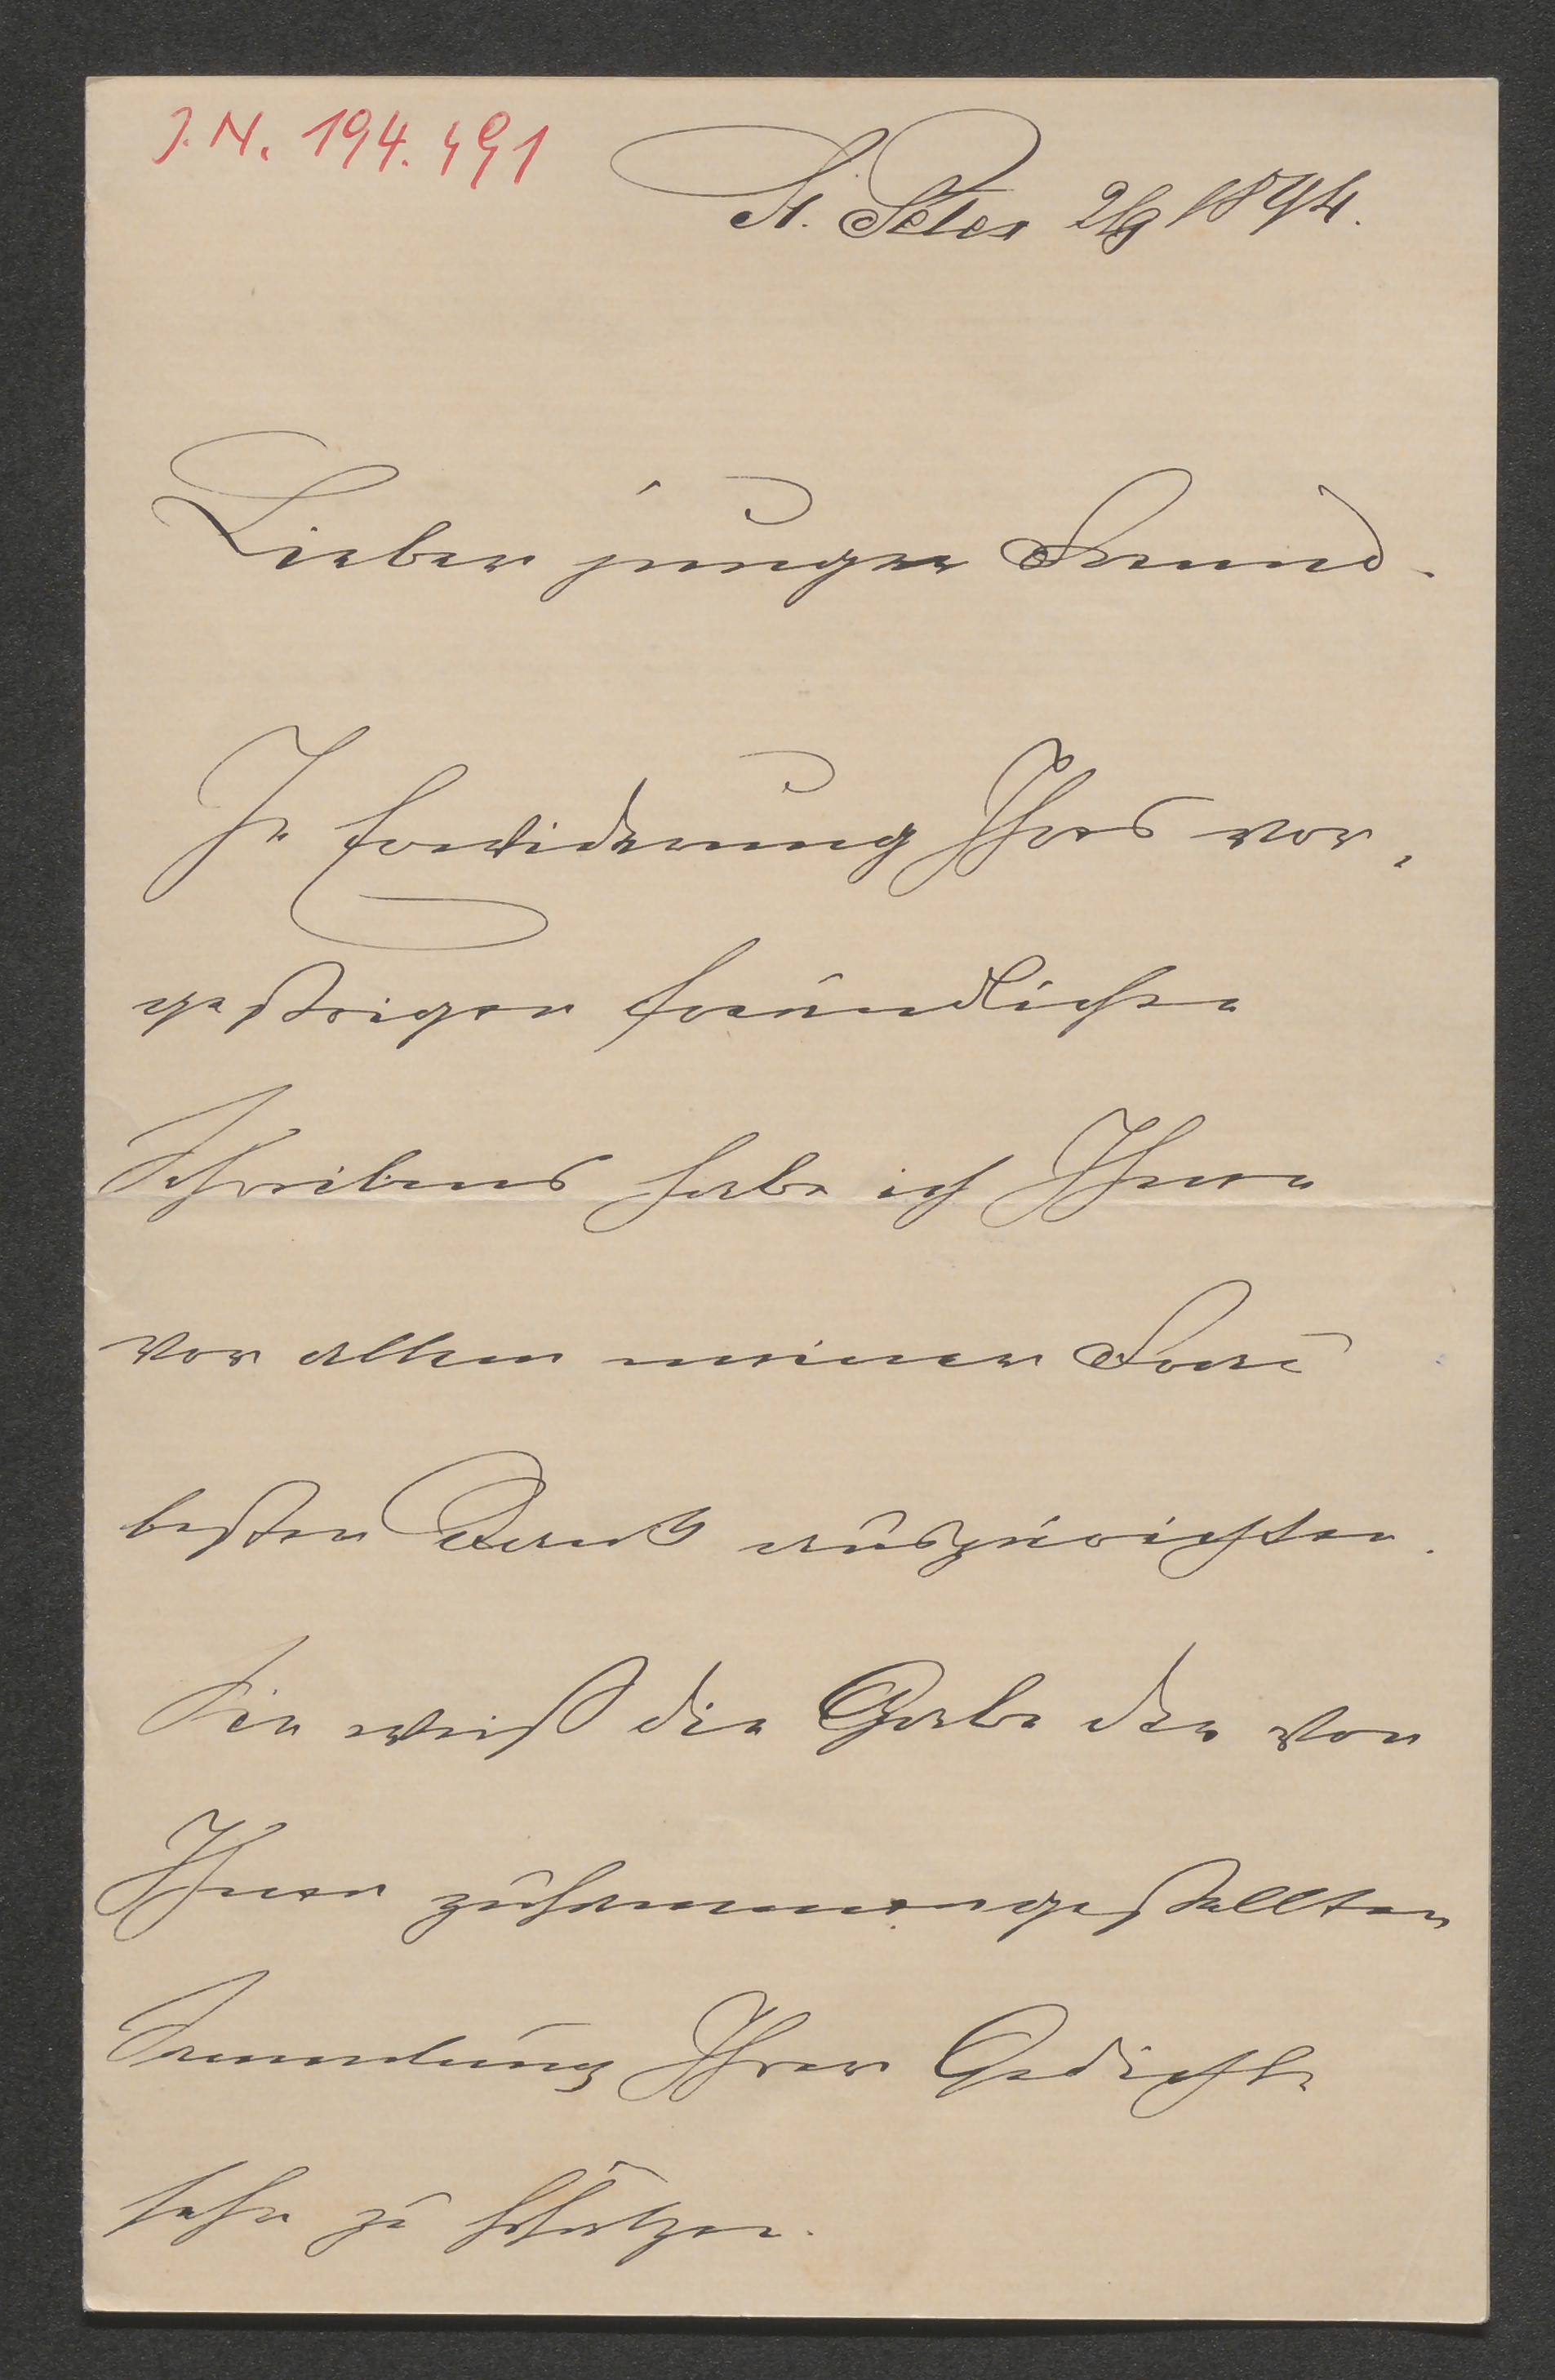 J. N. 194.491
St. Peter 2/9 1894.
Lieber junger Freund.
In Erwiderung Ihres vor-
gestrigen freundlichen
Schreibens habe ich Ihnen
vor allem meiner Frau
besten Dank auszurichten.
Sie weiß die Gabe der von
Ihnen zusammengestellten
Sammlung Ihrer Gedichte
sehr zu schätzen.